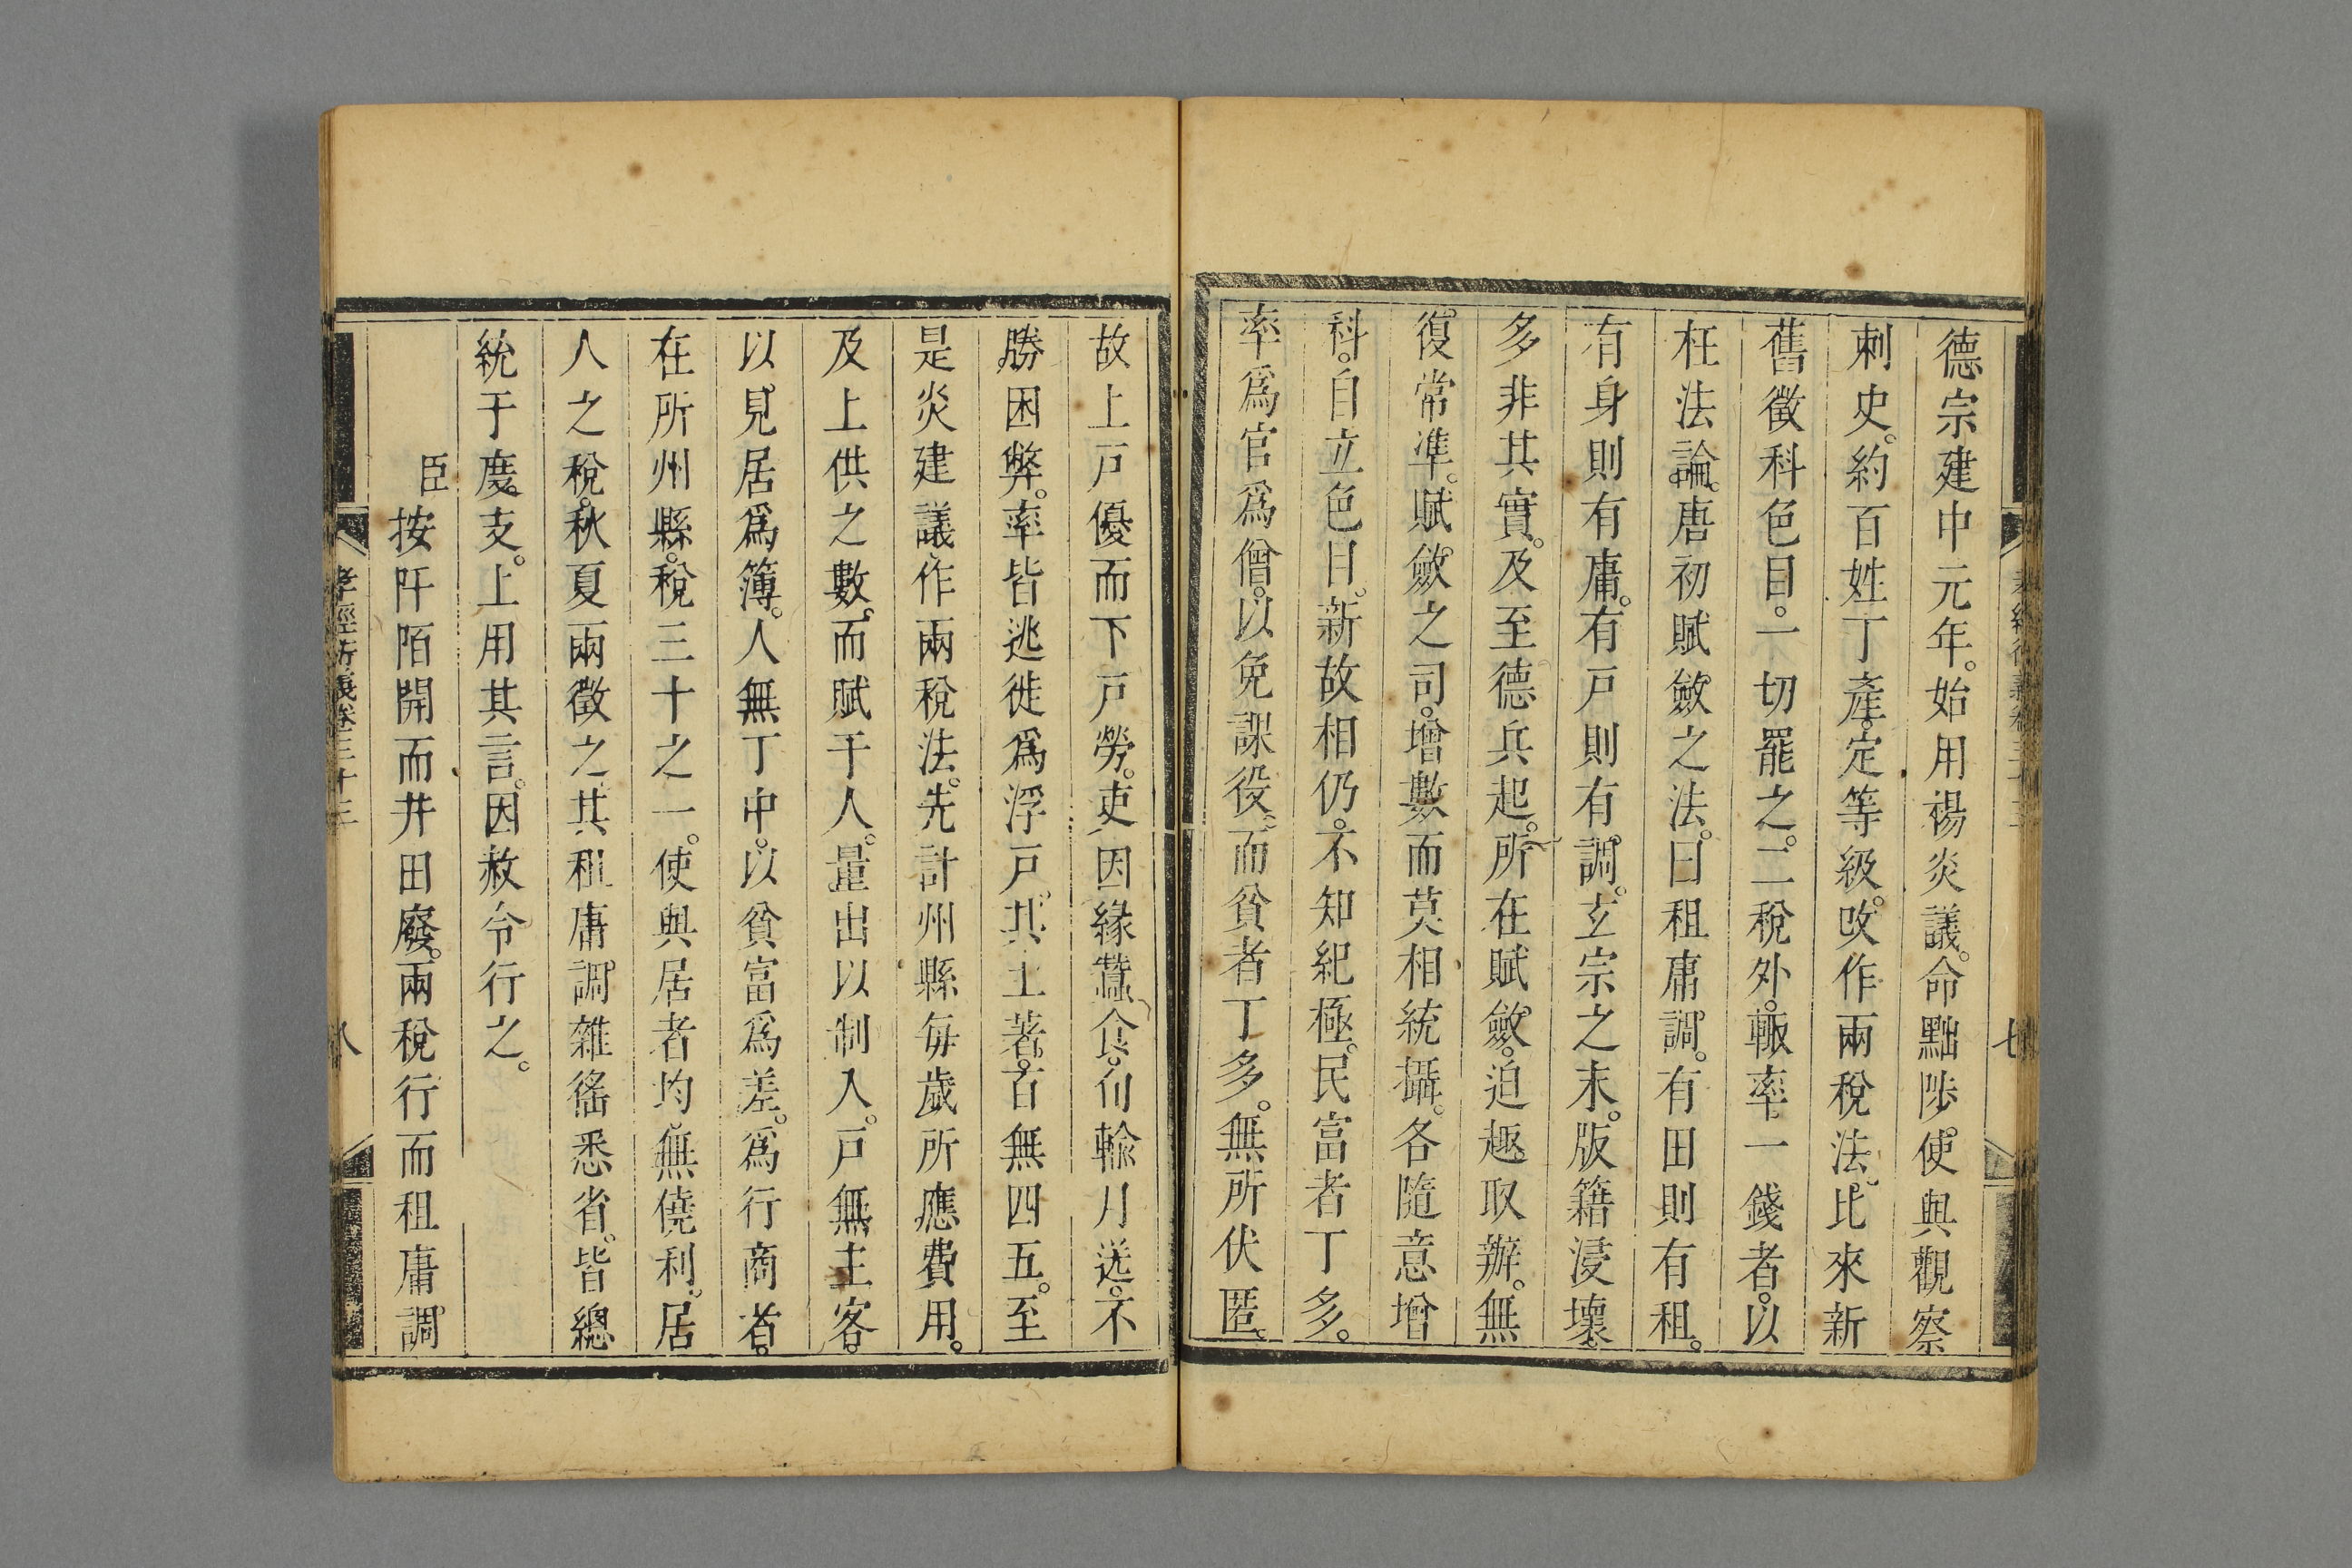 德宗建中元年。始用楊炎議。命黜陟使與觀察
刺史。約百姓丁產。定等級。改作兩稅法。比來新
舊徵科色目。一切罷之。二稅外。輙率一錢者。以
枉法論。唐初賦斂之法。曰租庸調。有田則有租。
有身則有庸。有戸則有調。玄宗之末。版籍浸壞。
多非其實。及至德兵起。所在賦斂。迫趣取辦。無
復常準。賦斂之司。增數而莫相統攝。各隨意增
科。自立色目。新故相仍。不知紀極。民富者丁多。
率爲官爲僧。以免課役。而貧者丁多。無所伏匿。
故上戸優而下戸勞。吏因緣蠶食。旬輸月送。不
勝困弊。率皆逃徙爲浮戸。其土著。百無四五。至
是炎建議。作兩稅法。先計州縣每歲所應費用。
及上供之數。而賦于人。量出以制入。戸無主客。
以見居爲簿。人無丁中。以貧富爲差。爲行商者。
在所州縣。稅三十之一。使與居者均。無僥利。居
人之稅。秋夏兩徵之。其租庸調雜徭悉省。皆總
統于度支。上用其言。因赦令行之。
臣按阡陌開而井田廢。兩稅行而租庸調
孝經衍義卷三十三
八